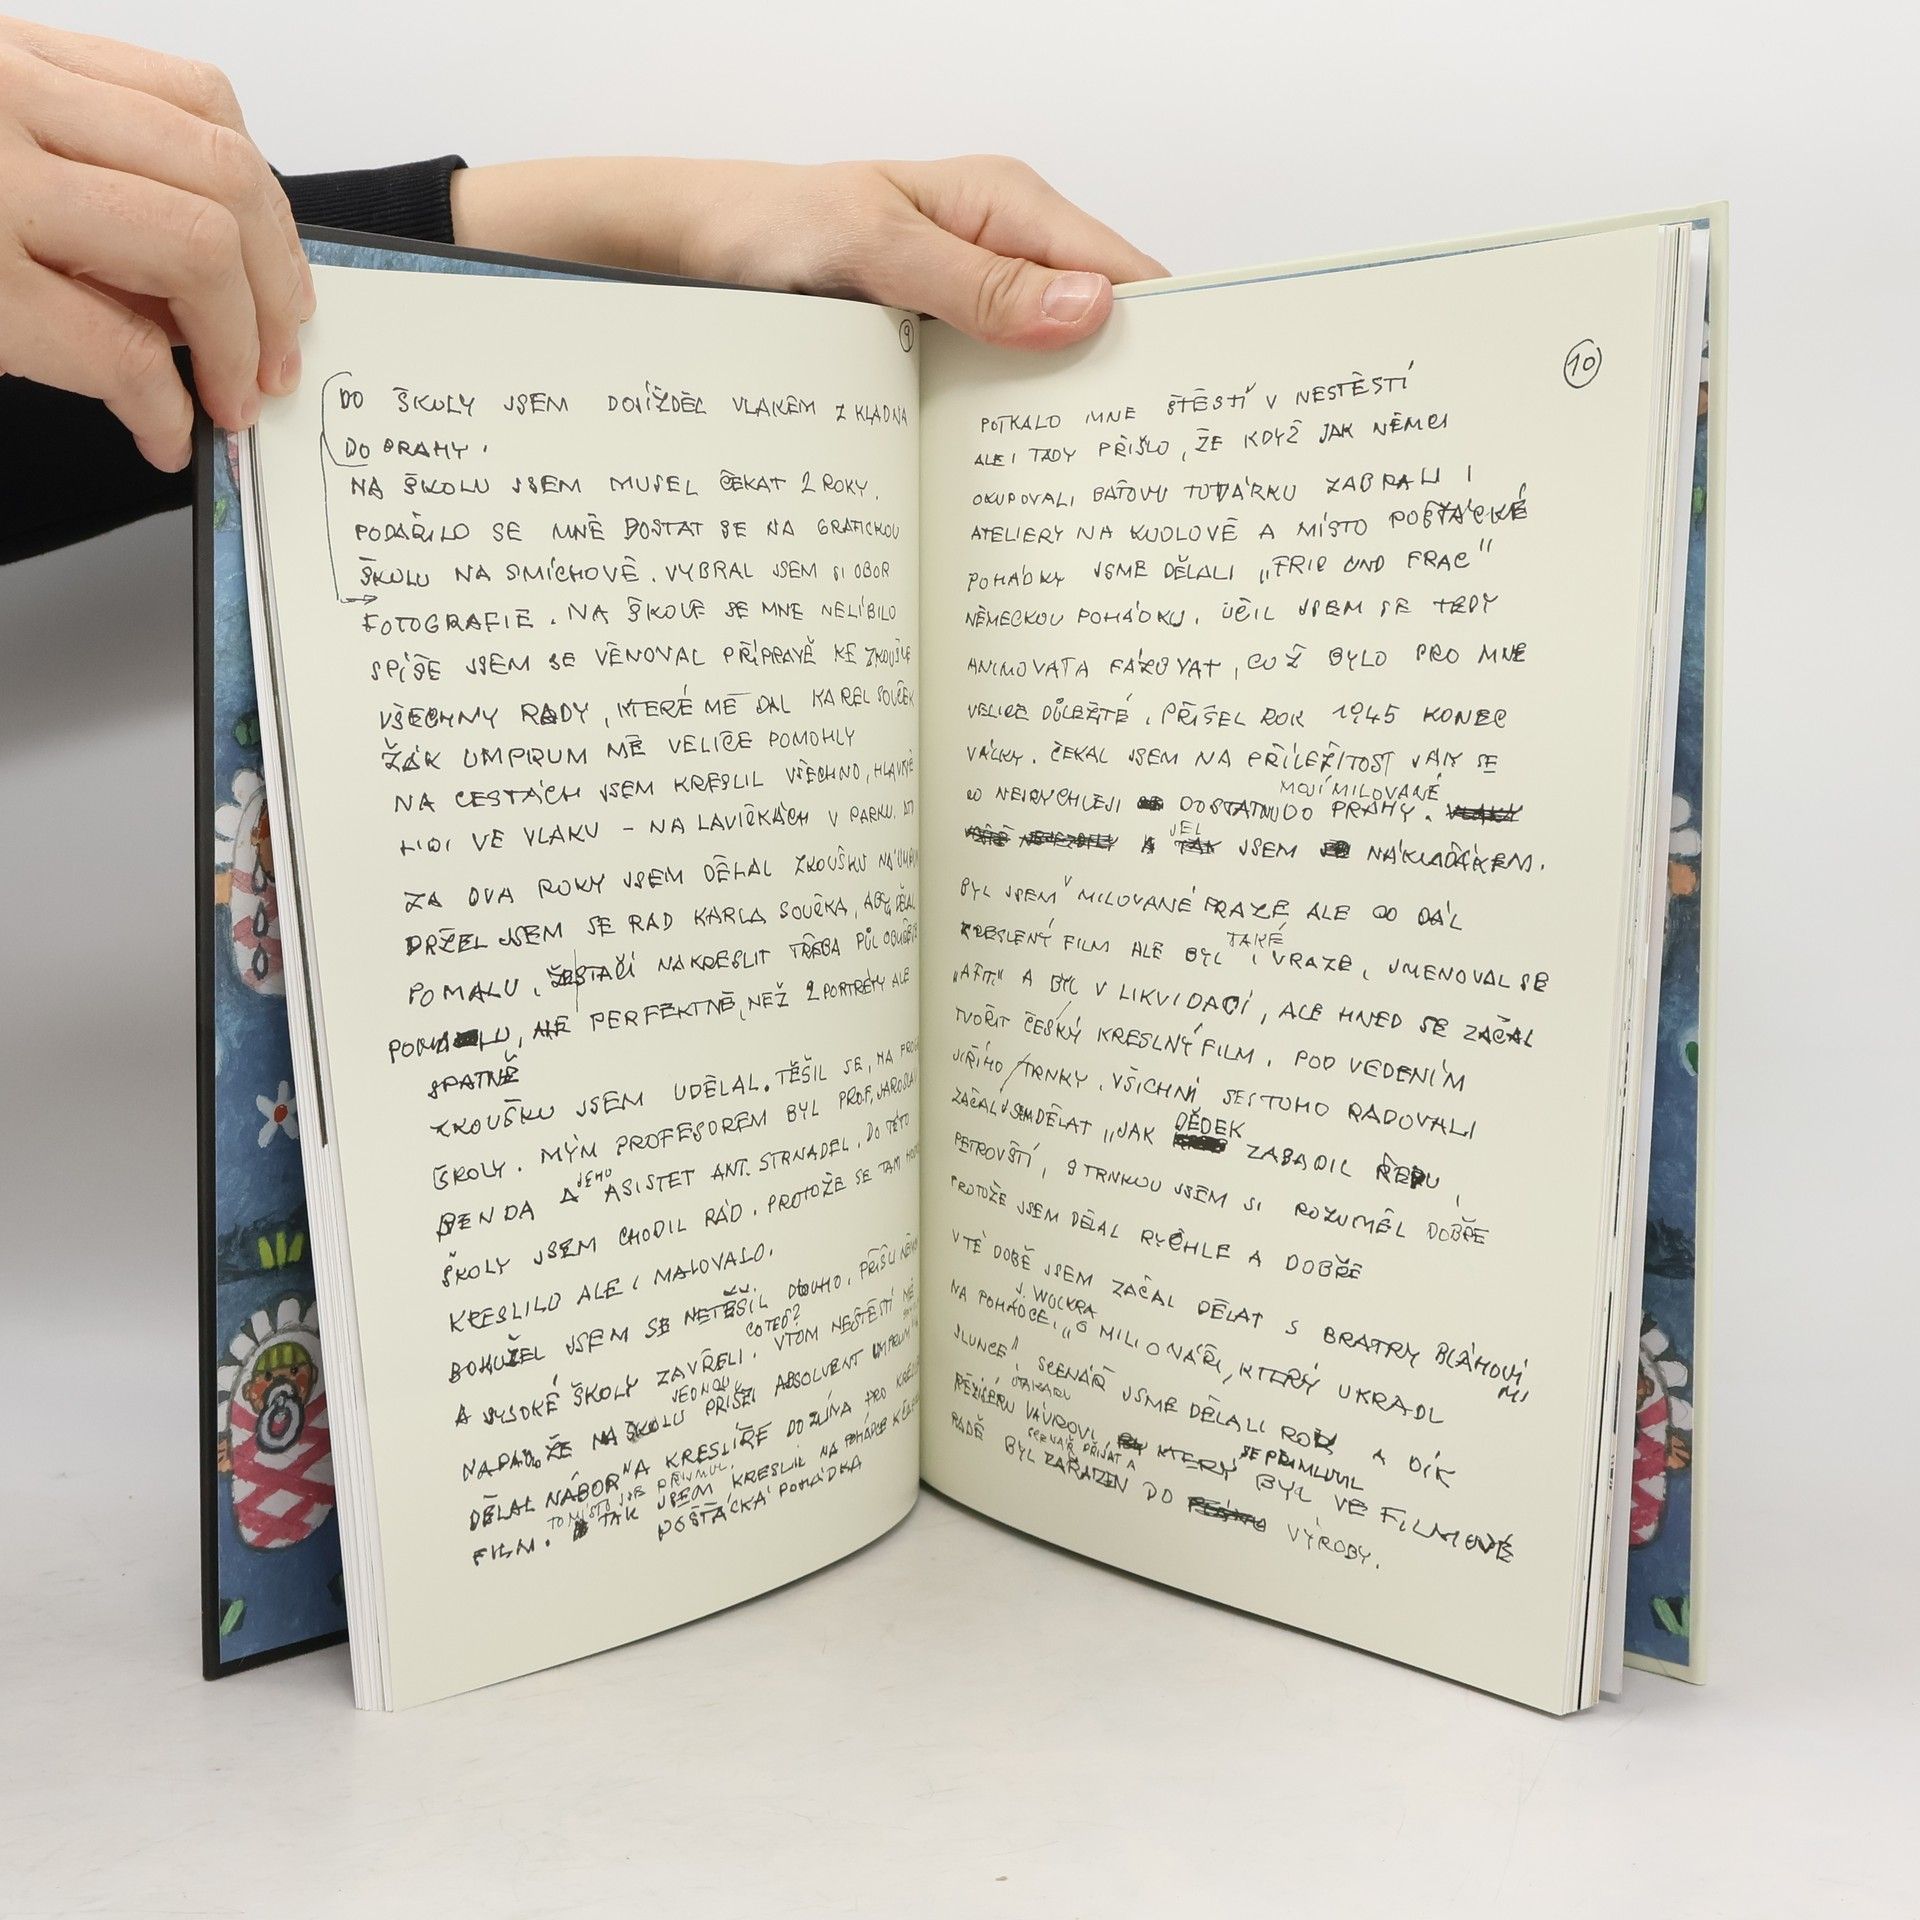 9
DO ŠKOLY JSEM DOJÍŽDĚL VLAKEM Z KLADNA
DO PRAHY.
NA ŠKOLU JSEM MUSEL ČEKAT 2 ROKY.
PODAŘILO SE MNĚ DOSTAT SE NA GRAFICKOU
ŠKOLU NA SMÍCHOVĚ. VYBRAL JSEM SI OBOR
FOTOGRAFIE. NA ŠKOLE SE MNE NELÍBILO
SPÍŠE JSEM SE VĚNOVAL PŘÍPRAVĚ KE ZKOUŠCE
VŠECHNY RADY, KTERÉ MĚ DAL KAREL SOUČEK
ŽÁK UMPRUM MĚ VELICE POMOHLY
NA CESTÁCH JSEM KRESLIL VŠECHNO, HLAVNĚ
LIDI VE VLAKU – NA LAVIČKÁCH V PARKU.
ZA DVA ROKY JSEM DĚLAL ZKOUŠKU NA
DRŽEL JSEM SE RAD KARLA SOUČKA, ABY DĚLAL
POMALU, STAČÍ NAKRESLIT TŘEBA PŮL
POMALU, ALE PERFEKTNĚ, NEŽ 2 PORTRÉTY ALE
ŠPATNĚ
ZKOUŠKU JSEM UDĚLAL. TĚŠIL SE, NA
ŠKOLY. MÝM PROFESOREM BYL PROF. JAROSLAV
BENDA A JEHO ASISTET ANT. STRNADEL. DO TÉTO
ŠKOLY JSEM CHODIL RÁD. PROTOŽE SE TAM
KRESLILO ALE I MALOVALO.
BOHUŽEL JSEM SE NETĚŠIL DLOUHO. PŘIŠLI
A VYSOKÉ ŠKOLY ZAVŘELI. CO TEĎ? V TOM NEŠTĚSTÍ MĚ
NAPADLO ŽE NA ŠKOLU JEDNOU PŘIŠEL ABSOLVENT UMPRUM
DĚLAL NÁBOR NA KRESLÍŘE DO ZLÍNA PRO
TO MÍSTO JSE PŘIJMUL.
FILM. TAK JSEM KRESLIL NA POHÁDCE K.
POŠŤÁCKÁ POHÁDKA
10
POTKALO MNE ŠTĚSTÍ V NEŠTĚSTÍ
ALE I TADY PŘIŠLO, ŽE KDYŽ JAK NĚMCI
OKUPOVALI BAŤOVU TOVÁRKU ZABRALI I
ATELIERY NA KUDLOVĚ A MÍSTO POŠŤÁCKÉ
POHÁDKY JSME DĚLALI „FRIC UND FRAC"
NĚMECKOU POHÁDKU. UČIL JSEM SE TEDY
ANIMOVAT A FÁZOVAT, COŽ BYLO PRO MNE
VELICE DŮLEŽITÉ. PŘIŠEL ROK 1945 KONEC
VÁLKY. ČEKAL JSEM NA PŘÍLEŽITOST JAK SE
CO NEJRYCHLEJI DOSTAT DO MOJÍ MILOVANÉ PRAHY.
A JEL JSEM NÁKLAĎÁKEM.
BYL JSEM V MILOVANÉ PRAZE ALE CO DÁL
KRESLENÝ FILM ALE BYL TAKÉ V PRAZE, JMENOVAL SE
„AFIT" A BYL V LIKVIDACI, ALE HNED SE ZAČAL
TVOŘIT ČESKÝ KRESLNÝ FILM. POD VEDENÍM
JIŘÍHO TRNKY. VŠICHNI SE STOHO RADOVALI
ZAČAL JSEM DĚLAT „JAK DĚDEK ZASADIL ŘEPU,
PETROVŠTÍ, S TRNKOU JSEM SI ROZUMĚL DOBŘE
PROTOŽE JSEM DĚLAL RYCHLE A DOBŘE
V TÉ DOBĚ JSEM ZAČAL DĚLAT S BRATRY BLÁHOVÝMI
NA POHÁDCE J. WOLKRA „O MILIONÁŘI, KTERÝ UKRADL
SLUNCE", SCENÁŘ JSME DĚLALI ROK A DÍK
REŽISÉRU OTAKARU VÁVROVI KTERÝ SE PŘIMLUVIL BYL VE FILMOVÉ
RADĚ BYL SCENÁŘ PŘIJAT A ZAŘAZEN DO VÝROBY.